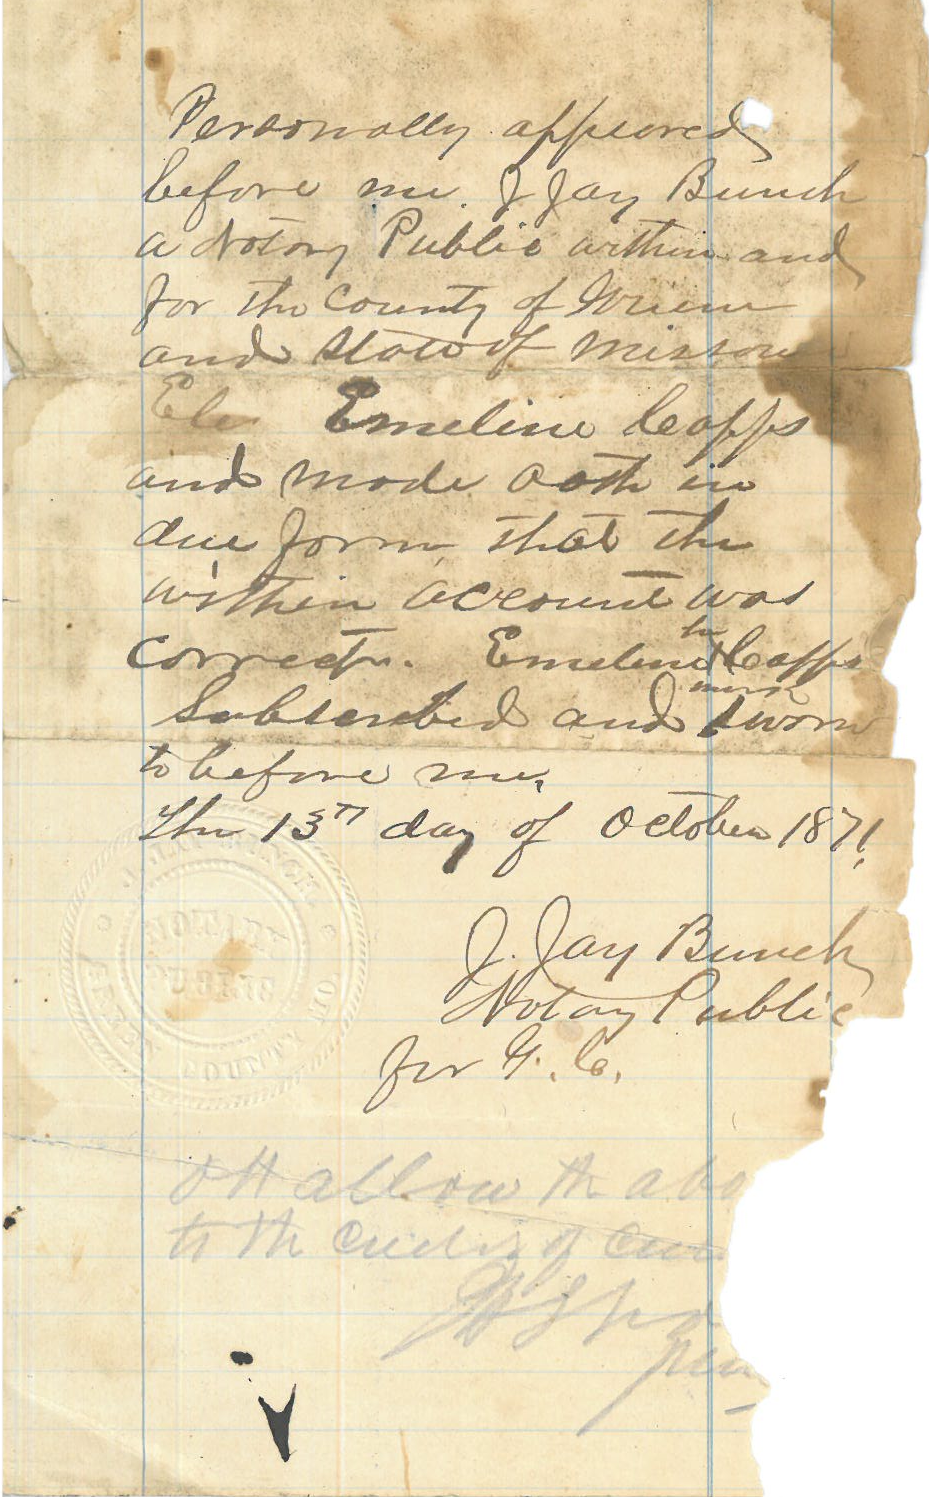 Personally appeared
before me. J Jay Bunch
a Notary Public within and
for the County of Greene
and State of Missouri
Emeline Capps
and made oath in
due form that the
within account was
correct. Emeline her X mark Capps
Subscribed and sworn
to before me,
The 13th day of October 1871.
J. Jay Bunch
Notary Public
for G. Co.
J. JAY BUNCH
NOTARY
PUBLIC
GREENE COUNTY
allow the abo
to the